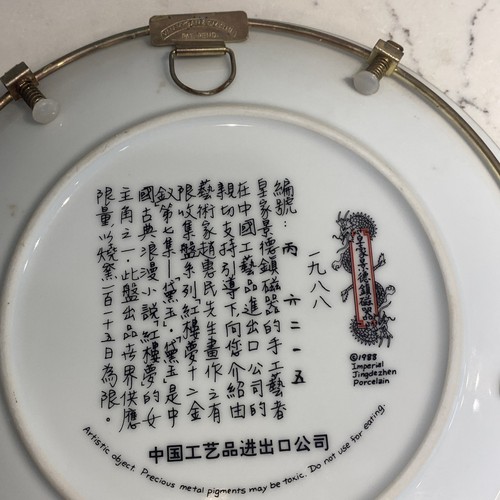 皇家景德鎮磁器
©1988
Imperial
Jingdezhen
Porcelain
一九八八
編號：丙 六二一五
皇家景德鎮磁器的手工藝者
在中國工藝品進出口公司的
親切支持引導下向您介紹由
藝術家趙惠民先生畫作之有
限收集盤系列「紅樓夢十二金
釵」第七集—「黛玉」。「黛玉」是中
國古典浪漫小說「紅樓夢」的女
主角之一。此盤出品世界供應
限量以燒窯一百一十五日為限。
中国工艺品进出口公司
Artistic object. Precious metal pigments may be toxic. Do not use for eating.